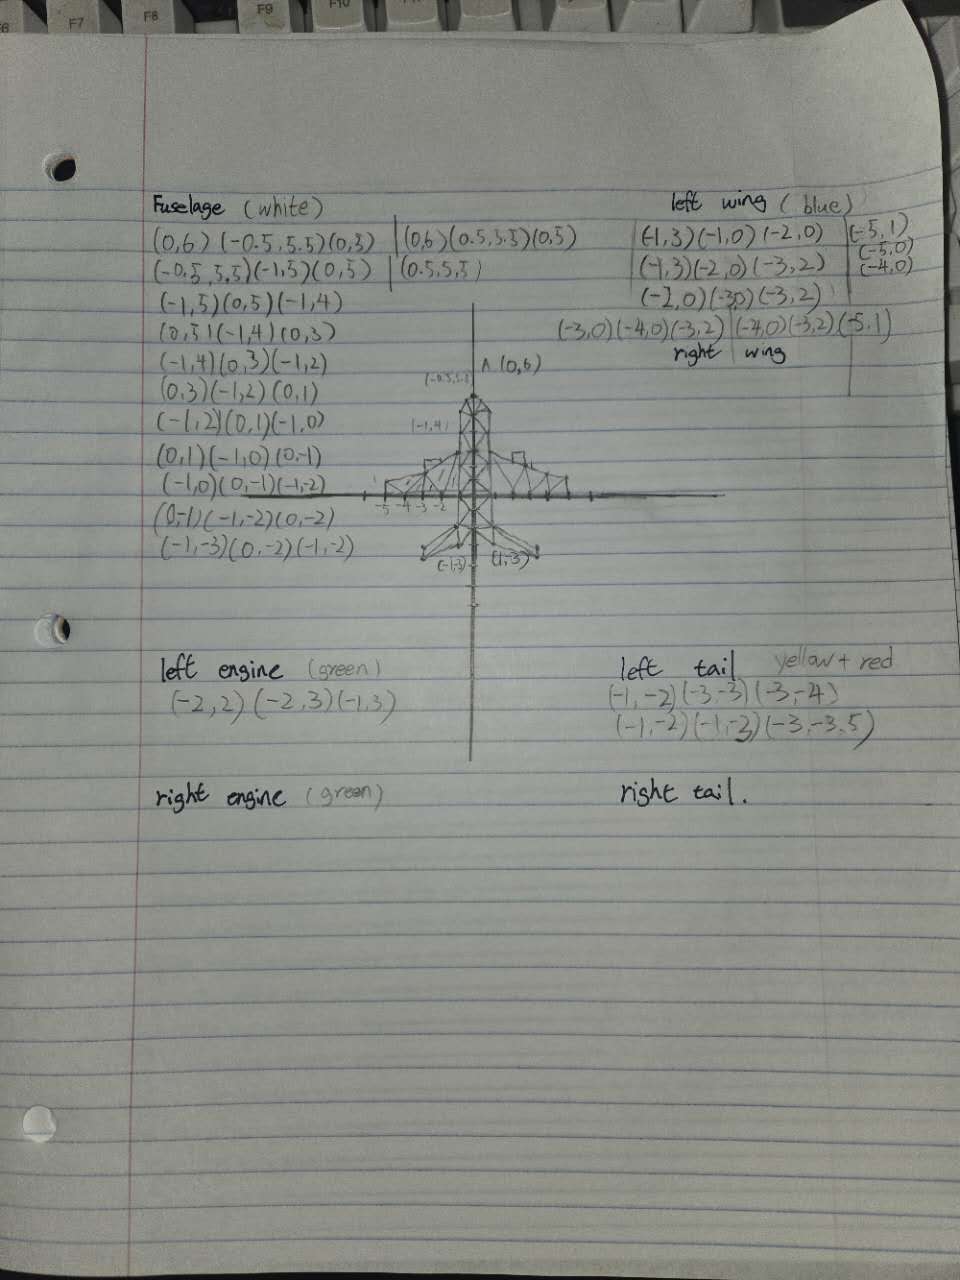 F7 F8 F9 F10
Fuselage (white)
(0,6) (-0.5,5.5)(0,5) | (0,6)(0.5,5.5)(0,5)
(-0.5,5.5)(-1,5)(0,5) | (0.5,5,5)
(-1,5)(0,5)(-1,4)
(0,5)(-1,4)(0,3)
(-1,4)(0,3)(-1,2)
(0,3)(-1,2)(0,1)
(-1,2)(0,1)(-1,0)
(0,1)(-1,0)(0,-1)
(-1,0)(0,-1)(-1,-2)
(0,-1)(-1,-2)(0,-2)
(-1,-3)(0,-2)(-1,-2)
left wing (blue)
(-1,3)(-1,0)(-2,0) | (-5,1)
(-5,0)
(-1,3)(-2,0)(-3,2) | (-4,0)
(-2,0)(-3,0)(-3,2)
(-3,0)(-4,0)(-3,2) | (-4,0)(-3,2)(-5,1)
right wing
(0,6)
(-0.5,5.5)
(-1,4)
-5 -4 -3 -2
(-1,-3) (1,-3)
left engine (green)
(-2,2)(-2,3)(-1,3)
left tail yellow + red
(-1,-2)(-3,-3)(-3,-4)
(-1,-2)(-1,-3)(-3,-3.5)
right engine (green)
right tail.